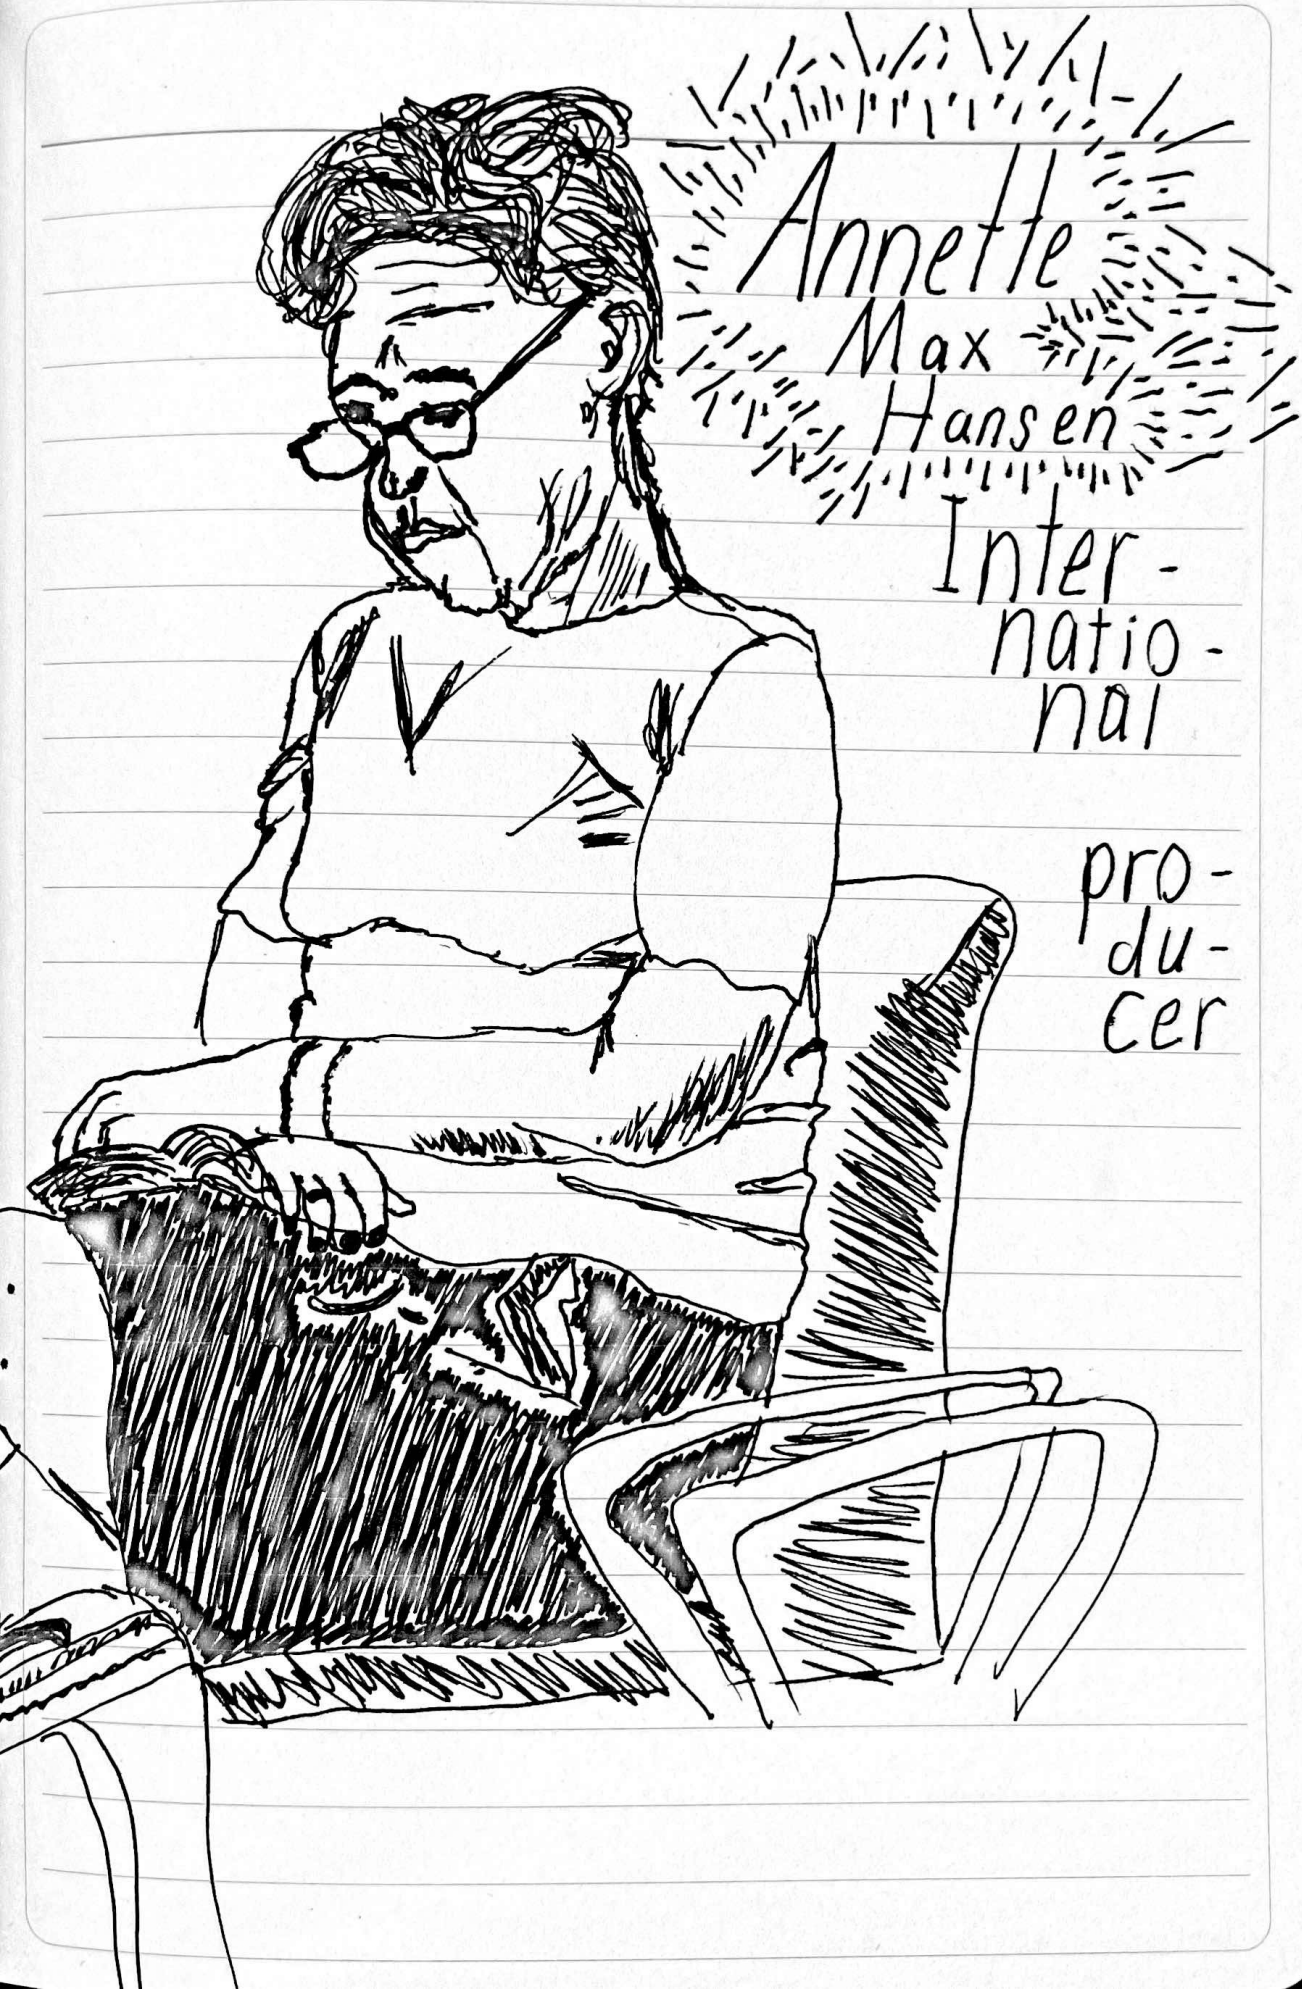 Annette
Max
Hansen
Inter-
natio-
nal
pro-
du-
cer